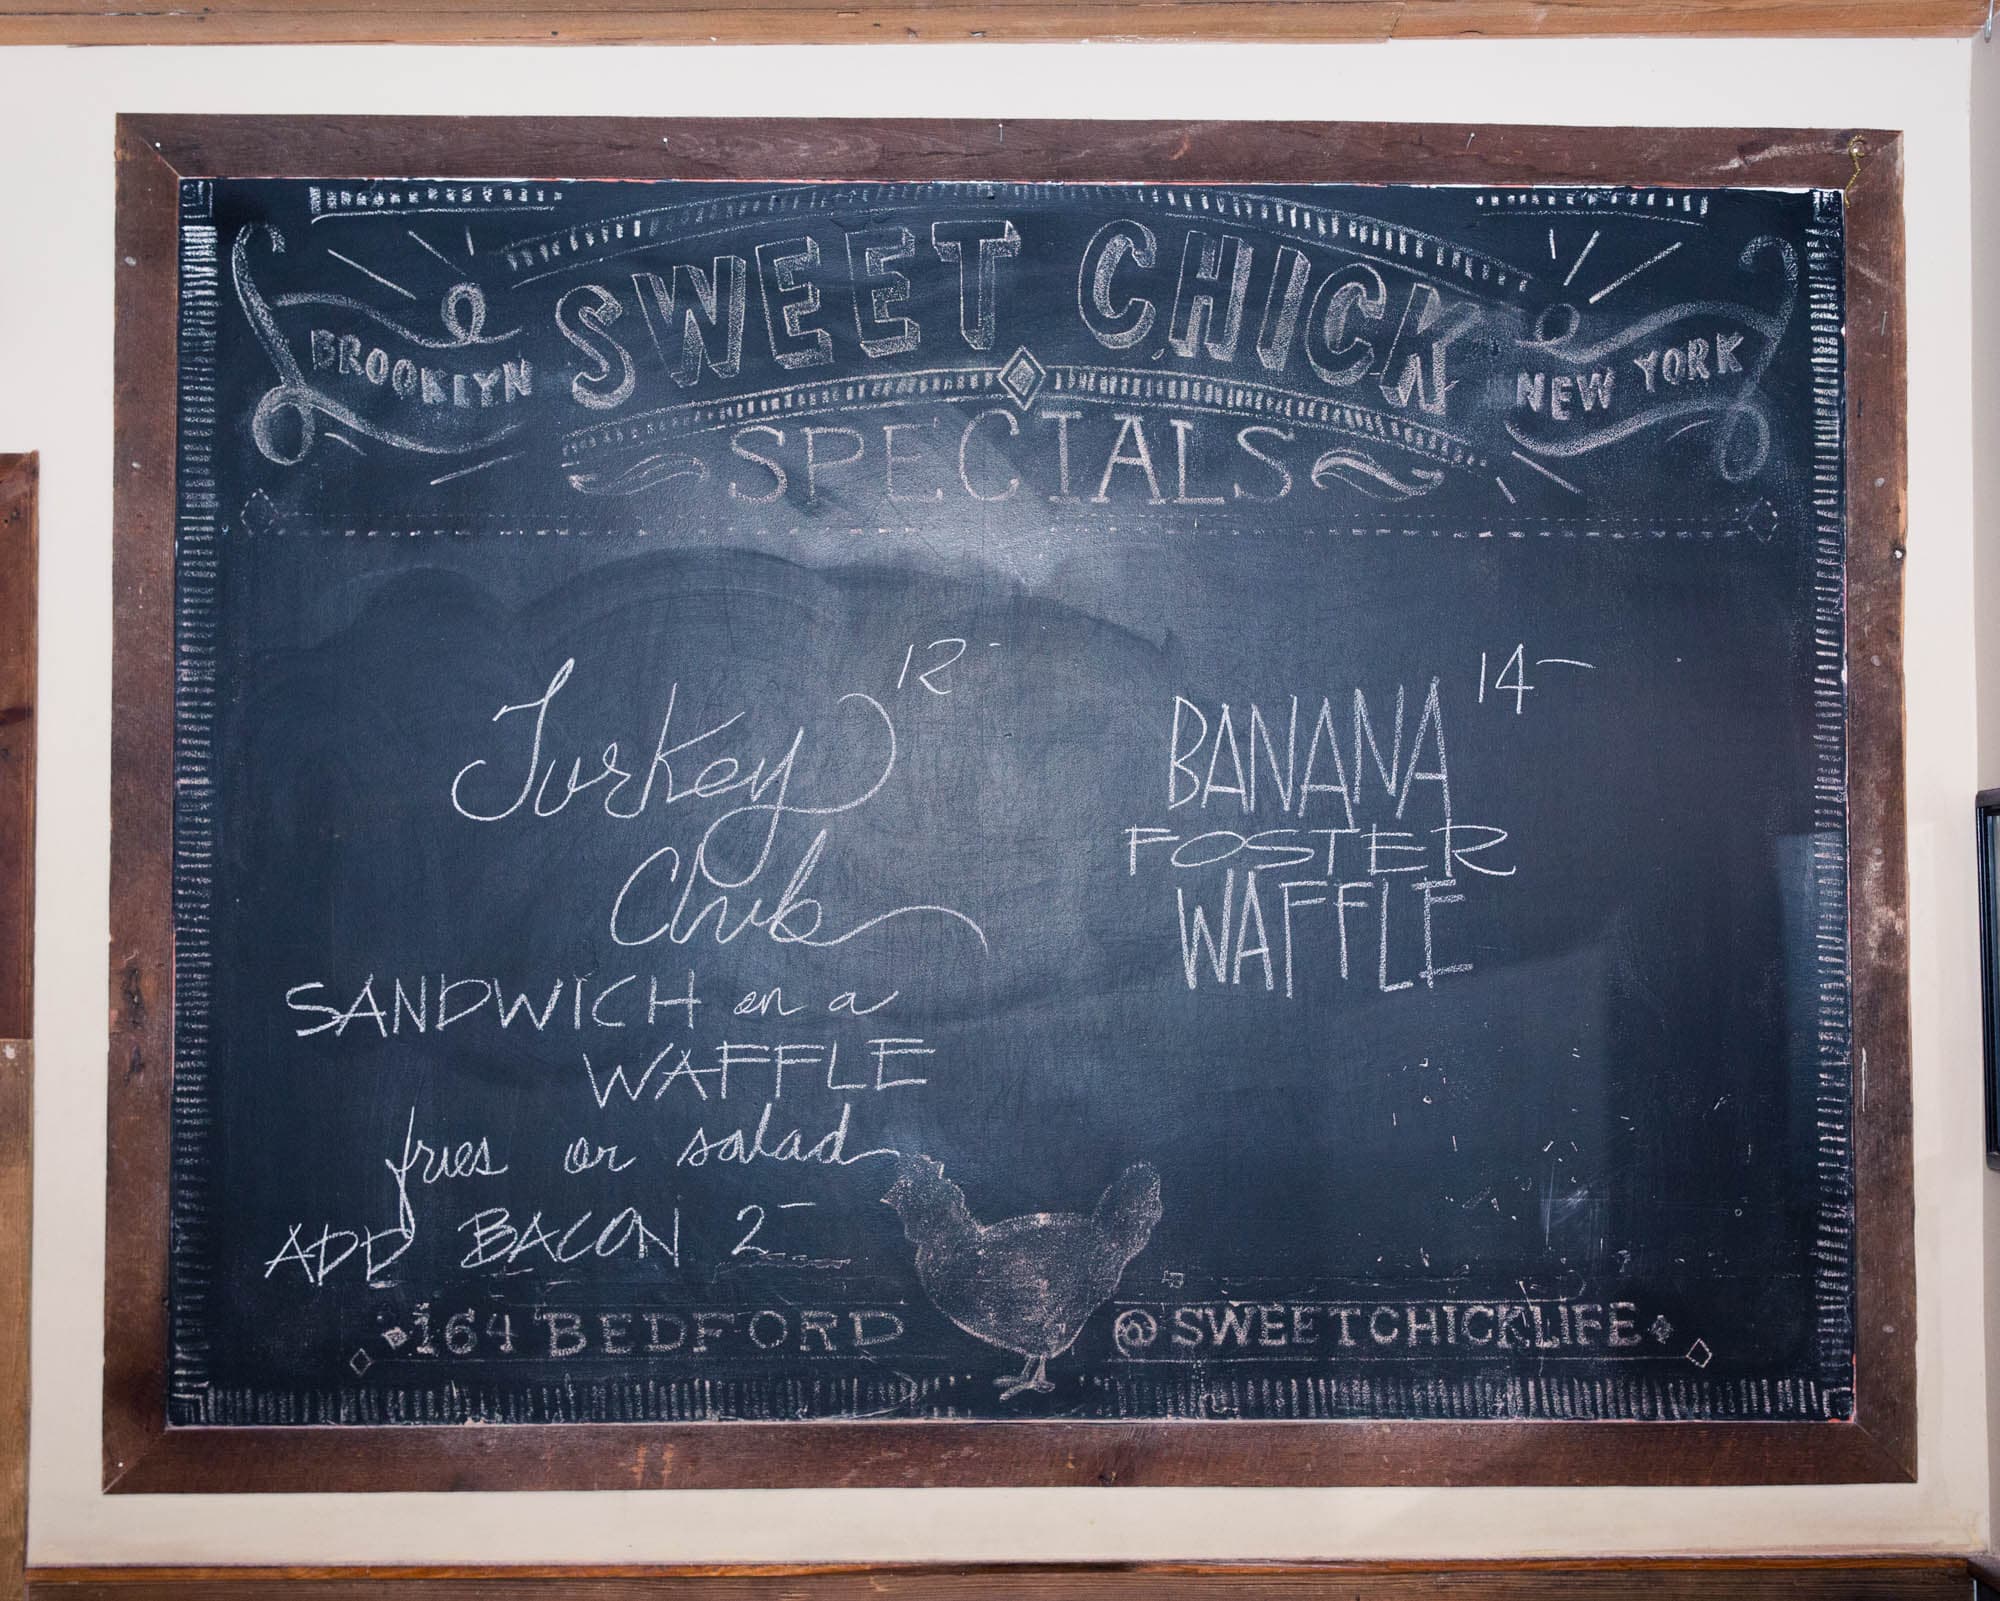 SWEET CHICK
BROOKLYN
NEW YORK
SPECIALS
Turkey 12-
Club
SANDWICH on a
WAFFLE
fries or salad
ADD BACON 2-
BANANA 14-
FOSTER
WAFFLE
164 BEDFORD
@SWEETCHICKLIFE